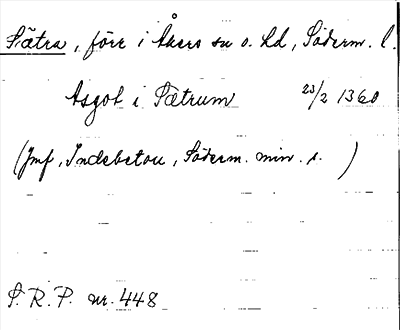 Sätra, förr i Åkers sn o. hd, Söderm. l.
Asgot i Sætrum 23/2 1360
(Jmf, Indebetou, Söderm. min. s. )
S. R. P. nr. 448